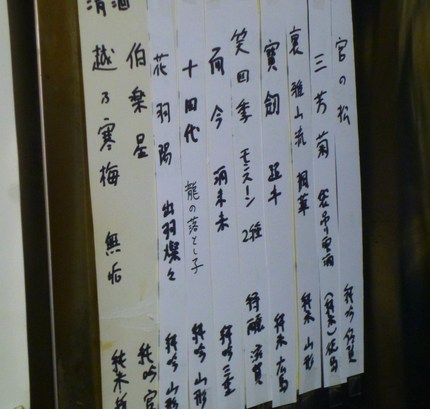 宮の松 純吟 佐賀
三芳菊 袋吊り雫酒 (純米) 徳島
裏雅山流 楓華 純米 山形
寶劔 超辛 純米 広島
笑四季 モンスーン 2種 特醸 滋賀
而今 酒未来 純吟 三重
十四代 龍の落とし子 純吟 山形
花羽陽 出羽燦々 純吟 山形
伯楽星 純吟 宮
越乃寒梅 無垢 純米
清酒